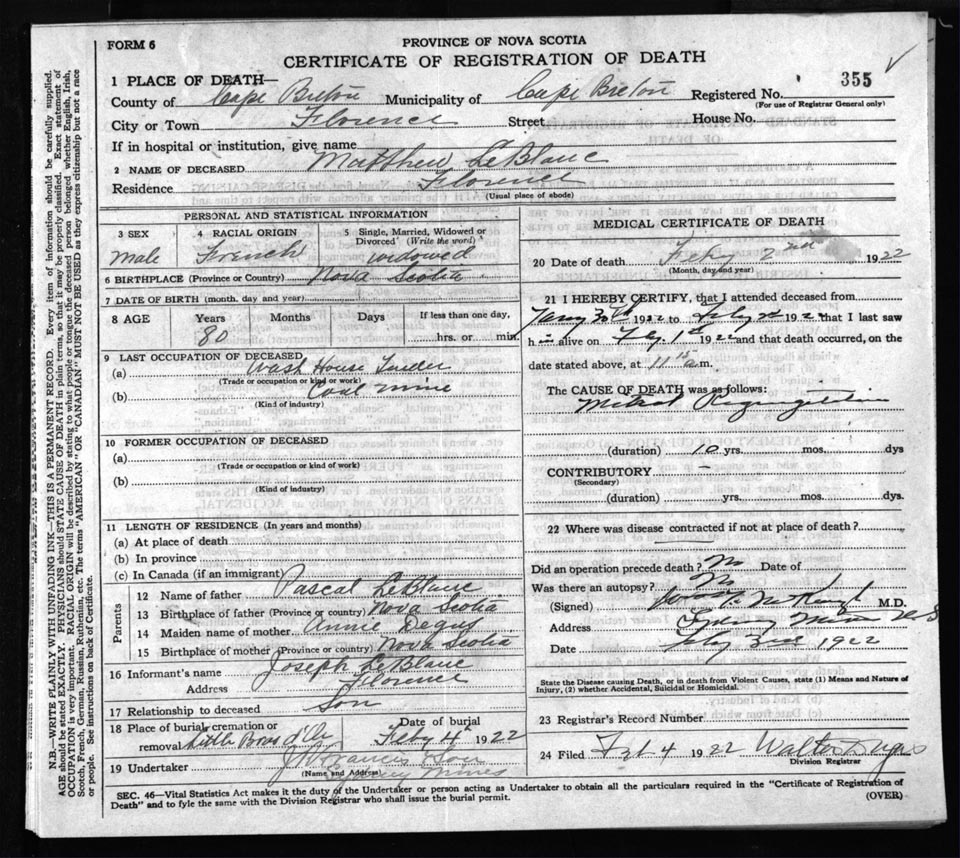 FORM 6
PROVINCE OF NOVA SCOTIA
CERTIFICATE OF REGISTRATION OF DEATH
1 PLACE OF DEATH—
County of Cape Breton Municipality of Cape Breton Registered No. 355
(For use of Registrar General only)
City or Town Florence Street House No.
If in hospital or institution, give name
2 NAME OF DECEASED Matthew LeBlanc
Residence Florence
(Usual place of abode)
PERSONAL AND STATISTICAL INFORMATION
3 SEX male
4 RACIAL ORIGIN French
5 Single, Married, Widowed or Divorced (Write the word) widowed
6 BIRTHPLACE (Province or Country) Nova Scotia
7 DATE OF BIRTH (month, day and year)
8 AGE Years 80 Months Days If less than one day, hrs. or min.
9 LAST OCCUPATION OF DECEASED
(a) Wash House Tender
(Trade or occupation or kind or work)
(b) Coal mine
(Kind of industry)
10 FORMER OCCUPATION OF DECEASED
(a)
(Trade or occupation or kind of work)
(b)
(Kind of industry)
11 LENGTH OF RESIDENCE (In years and months)
(a) At place of death
(b) In province
(c) In Canada (if an immigrant)
Parents
12 Name of father Pascal LeBlanc
13 Birthplace of father (Province or country) Nova Scotia
14 Maiden name of mother Annie
15 Birthplace of mother (Province or country) Nova Scotia
16 Informant's name Joseph LeBlanc
Address Florence
17 Relationship to deceased Son
18 Place of burial, cremation or removal Little Bras d'Or
Date of burial Feby 4th 1922
19 Undertaker J Francis Son
(Name and Address) Sydney Mines
MEDICAL CERTIFICATE OF DEATH
20 Date of death Feby 2nd 1922
(Month, day and year)
21 I HEREBY CERTIFY, that I attended deceased from
Jany 30th 1922 to Feby 2d 1922 that I last saw
him alive on Fby. 1st 1922 and that death occurred, on the
date stated above, at 11 15 a.m.
The CAUSE OF DEATH was as follows:
Mitral Regurgitation
(duration) 10 yrs. mos. dys
CONTRIBUTORY –
(Secondary)
(duration) yrs. mos. dys.
22 Where was disease contracted if not at place of death?
Did an operation precede death? No Date of
Was there an autopsy? No
(Signed) M.D.
Address Sydney Mines N.S
Date Fby 3rd 1922
State the Disease causing Death, or in death from Violent Causes, state (1) Means and Nature of
Injury, (2) whether Accidental, Suicidal or Homicidal.
23 Registrar's Record Number
24 Filed Feb 4 1922 Walter
Division Registrar
SEC. 46—Vital Statistics Act makes it the duty of the Undertaker or person acting as Undertaker to obtain all the particulars required in the "Certificate of Registration of
Death" and to fyle the same with the Division Registrar who shall issue the burial permit.
(OVER)
N.B.—WRITE PLAINLY WITH UNFADING INK—THIS IS A PERMANENT RECORD. Every item of information should be carefully supplied.
AGE should be stated EXACTLY. PHYSICIANS should STATE CAUSE OF DEATH in plain terms, so that it may be properly classified. Exact statement of
OCCUPATION is very important. RACIAL ORIGIN will be described by stating to what people or tongue the deceased person belonged whether English, Irish,
Scotch, French, German, Russian, Ruthenian, etc. The terms "AMERICAN" OR "CANADIAN" MUST NOT BE USED as they express citizenship but not a race
or people. See instructions on back of Certificate.